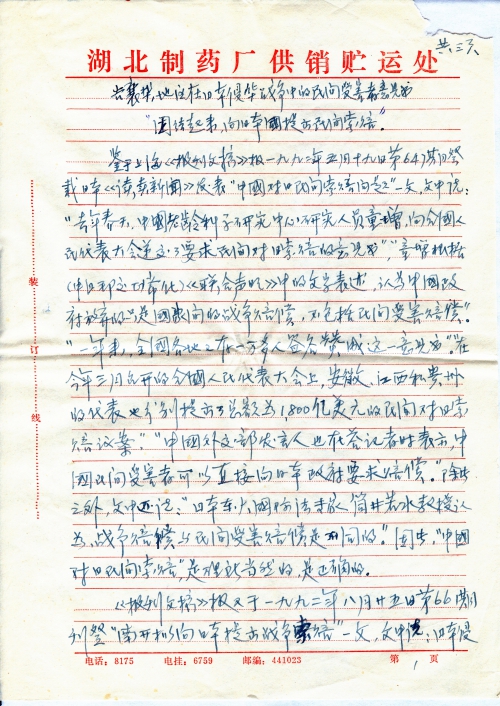 共三页
湖北制药厂供销贮运处
古襄樊地区在日本侵华战争中的民间受害者意见书
"团结起来,向日本國提出民间索赔"。
鉴于上海《报刊文摘》报一九九二年五月十九日第64期刊登
载日本《读卖新闻》发表"中國对日民间索赔问题"一文,文中说:
"去年春天,中國老龄科学研究中心研究人员童增,向全國人
民代表大会递交了要求民间对日索赔的意见书","童增根据
《中日邦交正常化》《联合声明》中的文字表述,认为中國政
府放弃的"是國家间的战争赔偿,不包括民间受害赔偿"。
"一年来,全國各地已有一万多人签名赞成这一意见书"。"在
今年三月召开的全國人民代表大会上,安徽、江西和贵州
的代表也分别提出了总额为1,800亿美元的民间对日索
赔议案"。"中國外交部发言人也在答记者时表示,中
國民间受害者可以直接向日本政府要求赔偿。"除此
之外,文中还说:"日本东 大国际法专家筒井若水教授认
为,战争赔偿与民间受害赔偿是不同的。"因此,"中國
对日民间索赔"是理所当然的,是正确的。
《报刊文摘》报又于一九九二年八月廿五日第66期
刊登"南开 向日本提出战争索赔"一文,文中说:日本侵
装订线
电话:8175 电挂:6759 邮编:441023 第1页